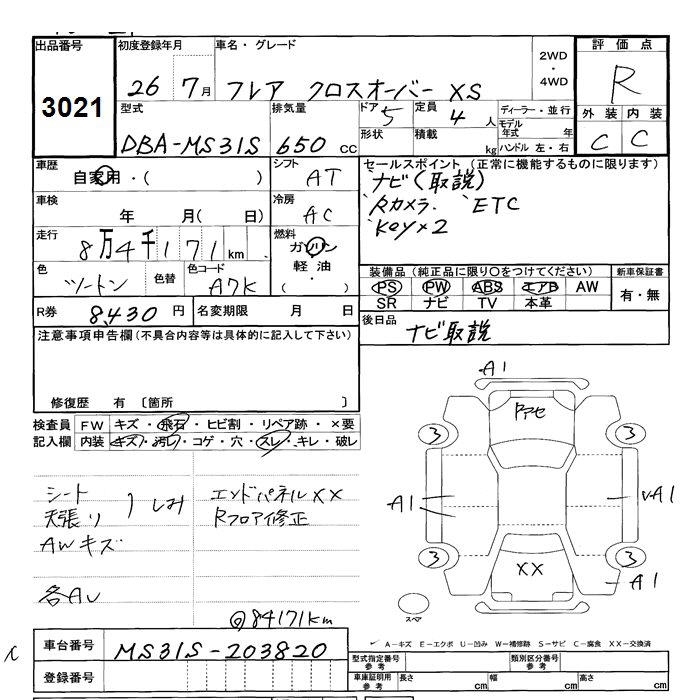 出品番号
3021
初度登録年月
26 7月
車名・グレード
フレア クロスオーバー XS
2WD
・
4WD
評価点
R
型式
DBA-MS31S
排気量
650 cc
ドア
5
定員
4 人
ディーラー・並行
モデル年式 年
形状
積載 kg
ハンドル 左・右
外装 内装
C C
車歴
自家用・( )
シフト
AT
セールスポイント (正常に機能するものに限ります)
ナビ(取説)
Rカメラ. ETC
Key×2
車検
年 月( 日)
冷房
AC
走行
8万4千171km
燃料
ガソリン
軽油・
( )
色
ツートン
色替
色コード
A7K
装備品 (純正品に限り○をつけてください)
新車保証書
PS PW ABS エアB AW
有・無
SR ナビ TV 本革
R券
8,430 円
名変期限 月 日
後日品
ナビ取説
注意事項申告欄 (不具合内容等は具体的に記入して下さい)
修復歴 有 〔箇所 〕
検査員
記入欄
FW キズ・飛石・ヒビ割・リペア跡・×要
内装 キズ・汚れ・コゲ・穴・スレ・キレ・破レ
シート
天張り
しみ
AWキズ
各AU
エンドパネルXX
Rフロア修正
@84171km
A1
Rアセ
3
3
A1
A1
3
3
XX
A1
スペア
A-キズ E-エクボ U-凹み W-補修跡 S-サビ C-腐食 XX-交換済
車台番号
MS31S-203820
登録番号
型式指定番号
参考
類別区分番号
参考
車庫証明用
参考
長さ cm
幅 cm
高さ cm